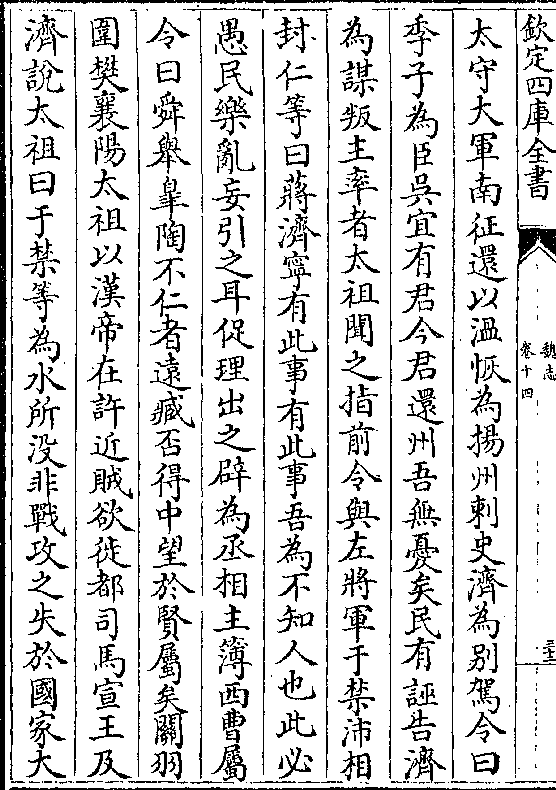 欽定四庫全書
魏志
卷十四
三十三
太守大軍南征還以溫恢為揚州刺史濟為别駕令曰
季子為臣吳宜有君今君還州吾無憂矣民有誣告濟
為謀叛主率者太祖聞之指前令與左將軍于禁沛相
封仁等曰蔣濟寧有此事有此事吾為不知人也此必
愚民樂亂妄引之耳促理出之辟為丞相主簿西曹屬
令曰舜舉臯陶不仁者遠臧否得中望於賢屬矣關羽
圍樊襄陽太祖以漢帝在許近賊欲徙都司馬宣王及
濟說太祖曰于禁等為水所没非戰攻之失於國家大